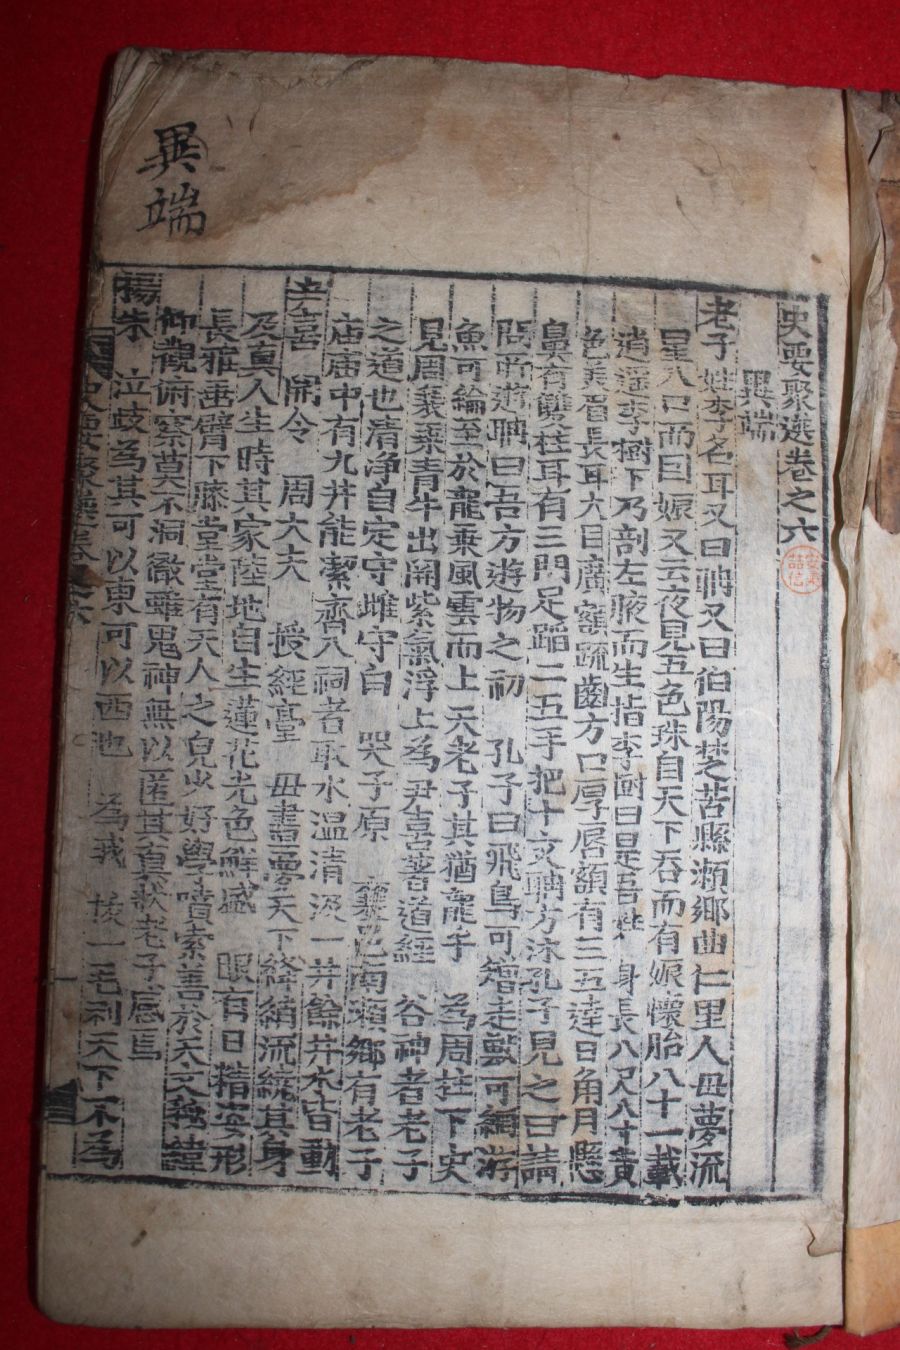 異端
史要聚選卷之六
異端
老子 姓李名耳又曰聃又曰伯陽楚苦縣瀬鄉曲仁里人毋夢流
星入口而曰娠又云夜見五色珠自天下吞而有娠懷胎八十一載
逍遥李樹下乃剖左腋而生指李樹曰是吾姓 身長八尺八寸黄
色美眉長耳大目廣額踈齒方口厚唇額有三五達日角月懸
鼻有雙柱耳有三門足蹈二五手把十文聃方沐孔子見之曰請
問所遊聃曰吾方遊物之初 孔子曰飛鳥可矰走獸可網游
魚可綸至於龍乗風雲而上天老子其猶龍乎 為周柱下史
見周衰乗青牛出関紫氣浮上為尹喜著道經 谷神者老子
之道也清净自定守雌守白 哭子原 襄邑南瀬鄉有老子
庙庙中有九井能潔齊入祠者取水温清汲一井餘井水皆動
尹喜 関令 周大夫 授經臺 毋晝夢天下絳綃流繞其身
及真人生時其家陸地自生蓮花光色鮮盛 眼有日精姿形
長雅垂臂下膝堂堂有天人之皃少好學墳索善於天文秘緯
仰觀俯察莫不洞徹雖鬼神無以匿其真狀老子感焉
楊朱 泣歧為其可以東可以西也 為我 拔一毛利天下不為
史要聚選卷六